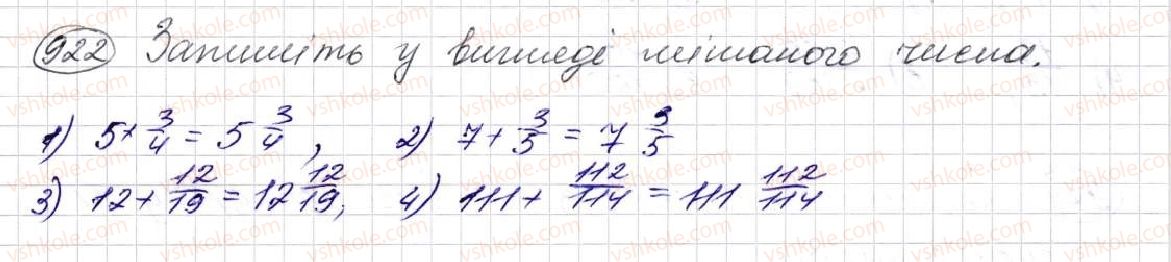 922 Запишіть у вигляді мішаного числа.
1) 5+ 3/4 = 5 3/4 , 2) 7 + 3/5 = 7 3/5
3) 12 + 12/19 = 12 12/19, 4) 111 + 112/114 = 111 112/114